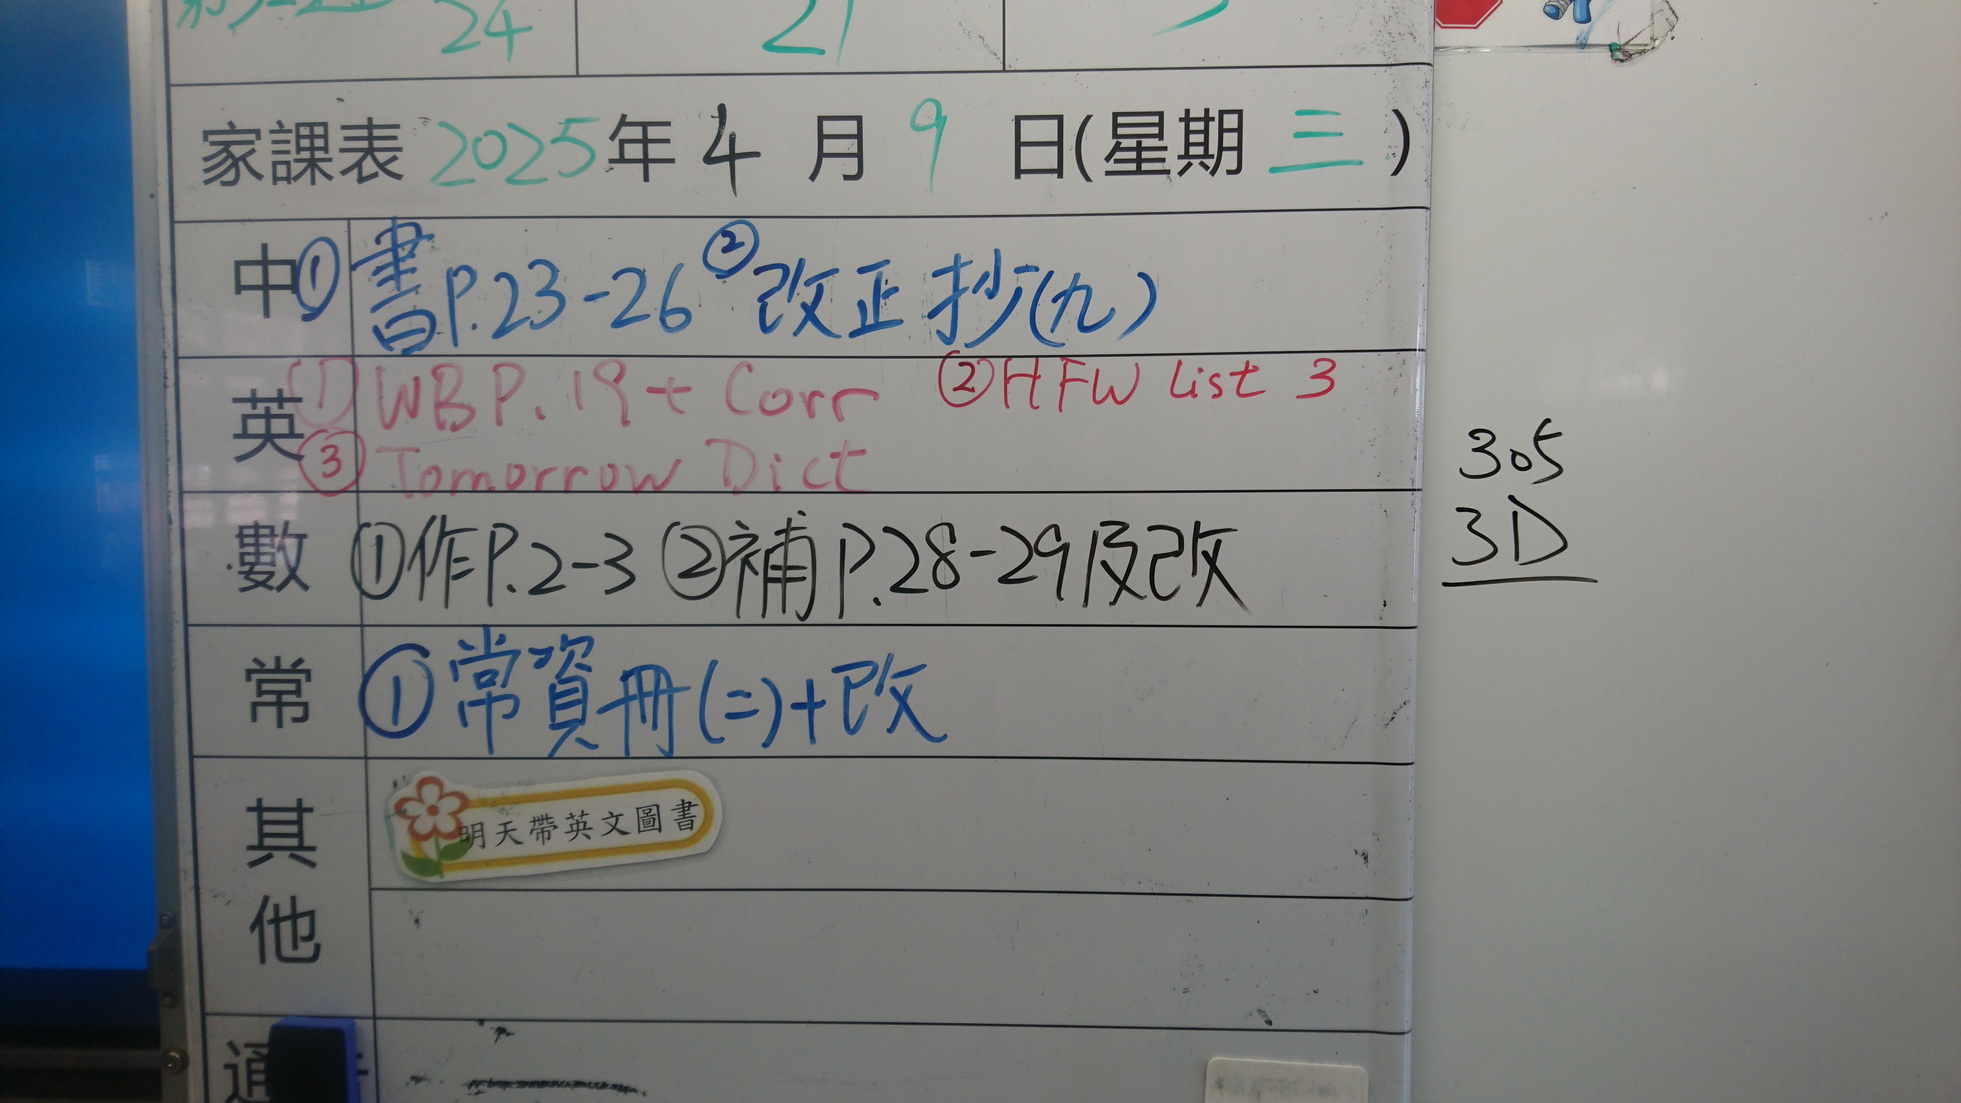 24 21
家課表 2025年 4 月 9 日(星期 三 )
中 ① 書P.23-26 ② 改正抄(九)
英 ① WB P.19 + Corr ② HFW List 3
③ Tomorrow Dict
數 ① 作P.2-3 ② 補P.28-29及改
常 ① 常資冊(二)+改
其他 明天帶英文圖書
通
305
3D